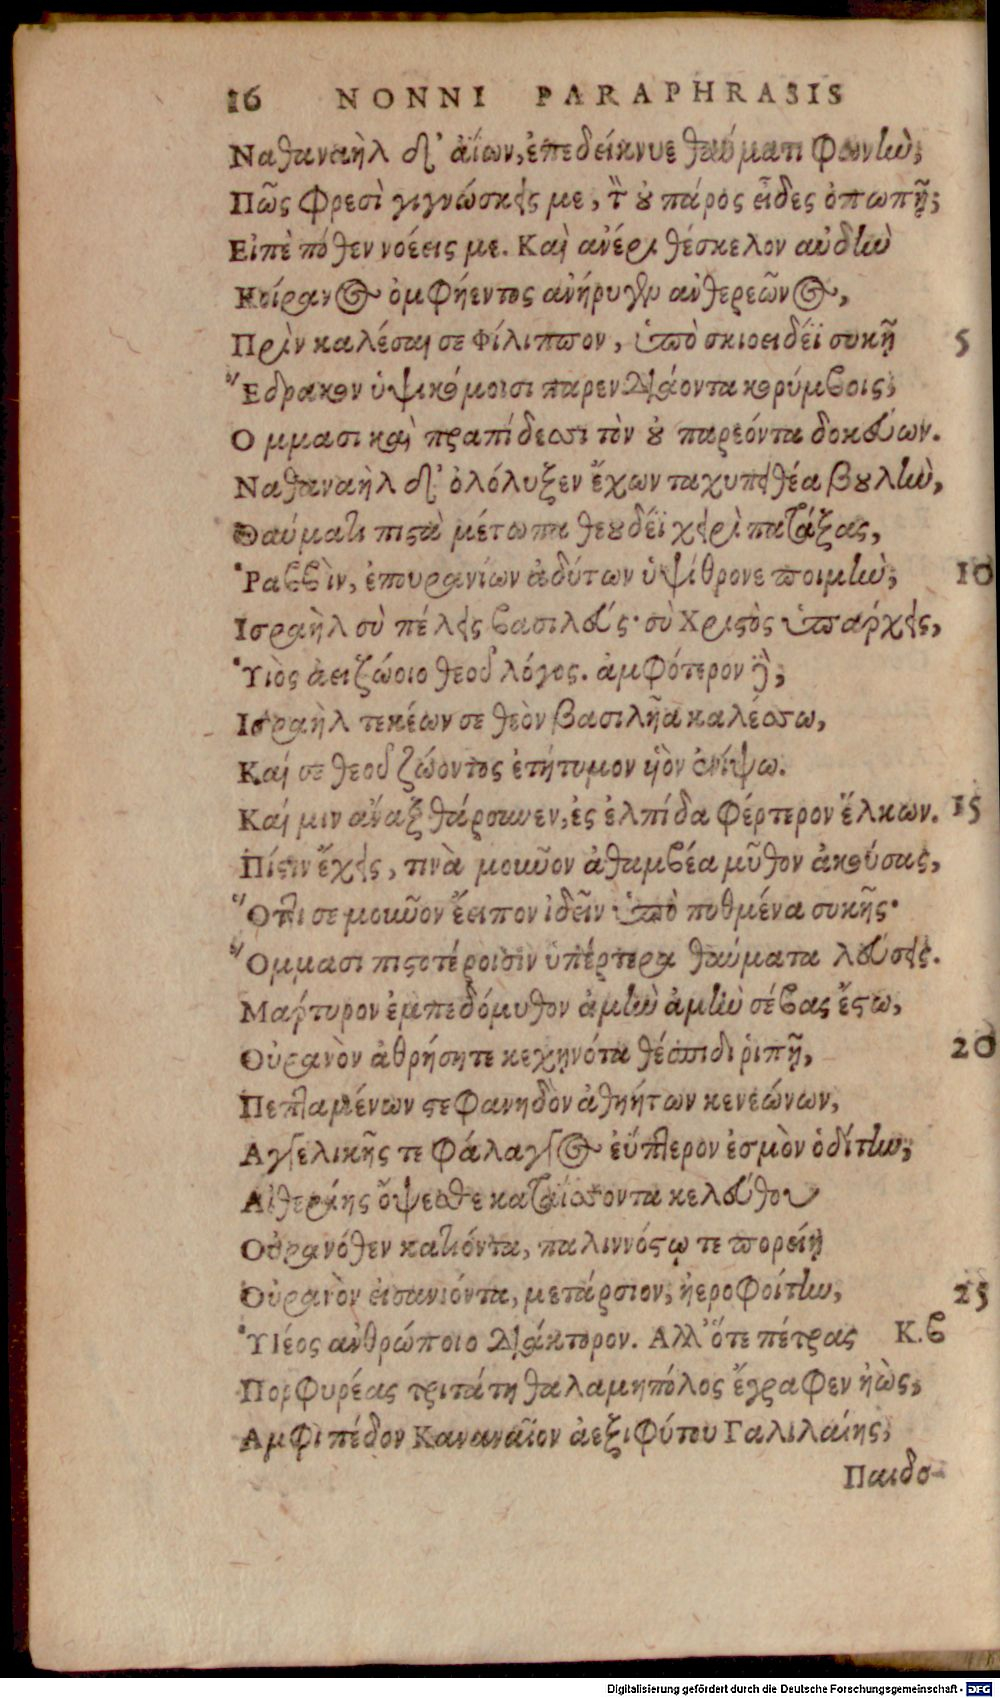 16 NONNI PARAPHRASIS
Ναθαναὴλ δ' ἀΐων, ἐπεδείκνυε θαύματι φωνὴν,
Πῶς φρεσὶ γιγνώσκεις με, τὸν οὐ πάρος εἶδες ὀπωπῇ;
Εἰπὲ πόθεν νοέεις με. Καὶ ἀνέρι θέσκελον αὐδὴν
Κοίρανος ὀμφήεντος ἀνήρυγεν ἀνθερεῶνος,
Πρὶν καλέσαι σε Φίλιππον, ὑπὸ σκιοειδέϊ συκῇ 5
Ἔδρακον ὑψικόμοισι παρενδιάοντα κορύμβοις,
Ομμασι καὶ πραπίδεσσι τὸν οὐ παρεόντα δοκεύων.
Ναθαναὴλ δ' ὀλόλυξεν ἔχων ταχυπειθέα βουλὴν,
Θαύματι πιστὰ μέτωπα θεουδέϊ χειρὶ πατάξας,
Ῥαββὶν, ἐπουρανίων ἀδύτων ὑψίθρονε ποιμὴν, 10
Ισραὴλ σὺ πέλεις βασιλεύς· σὺ Χριστὸς ὑπάρχεις,
Ὑιὸς ἀειζώοιο θεοῦ λόγος. ἀμφότερον γὰρ,
Ισραὴλ τεκέων σε θεὸν βασιλῆα καλέσσω,
Καί σε θεοῦ ζώοντος ἐτήτυμον υἱὸν ἐνίψω.
Καί μιν ἄναξ θάρσυνεν, ἐς ἐλπίδα φέρτερον ἕλκων. 15
Πίστιν ἔχεις, τινὰ μοῦνον ἀθαμβέα μῦθον ἀκούσας,
Ὅττι σε μοῦνον ἔειπον ἰδεῖν ὑπὸ πυθμένα συκῆς·
Ὄμμασι πιστοτέροισιν ὑπέρτερα θαύματα λεύσεις.
Μάρτυρον ἐμπεδόμυθον ἀμὴν ἀμὴν σέβας ἔστω,
Οὐρανὸν ἀθρήσητε κεχηνότα θέσπιδι ῥιπῇ, 20
Πεπταμένων στεφανηδὸν ἀθηήτων κενεώνων,
Αγγελικῆς τε φάλαγγος ἐΰπτερον ἑσμὸν ὁδίτην,
Αἰθερίης ὄψεσθε καταΐσσοντα κελεύθου
Οὐρανόθεν κατιόντα, παλιννόστῳ τε πορείῃ
Οὐρανὸν εἰσανιόντα, μετάρσιον, ἠεροφοίτην, 25
Ὑιέος ἀνθρώποιο διάκτορον. Αλλ' ὅτε πέτρας Κ.β
Πορφυρέας τριτάτη θαλαμηπόλος ἔγραφεν ἠὼς,
Αμφὶ πέδον Καναναῖον ἀεξιφύτου Γαλιλαίης,
Παιδο-
Digitalisierung gefördert durch die Deutsche Forschungsgemeinschaft - DFG